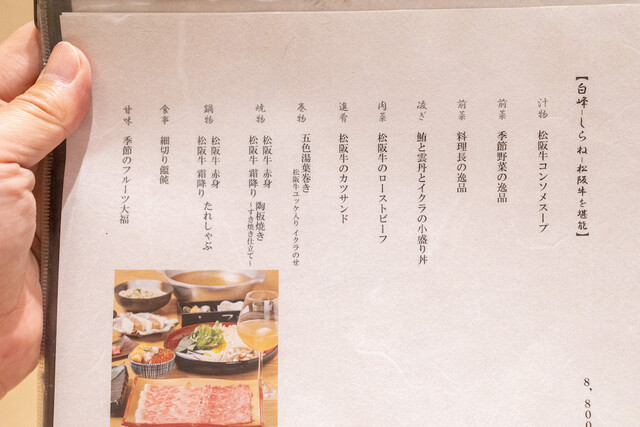 【白峰-しらね-松阪牛を堪能】
汁物 松阪牛コンソメスープ
前菜 季節野菜の逸品
前菜 料理長の逸品
凌ぎ 鮪と雲丹とイクラの小盛り丼
肉菜 松阪牛のローストビーフ
進肴 松阪牛のカツサンド
巻物 五色湯葉巻き
松阪牛ユッケ入り イクラのせ
焼物 松阪牛 赤身
松阪牛 霜降り 陶板焼き
~すき焼き仕立て~
鍋物 松阪牛 赤身
松阪牛 霜降り たれしゃぶ
食事 細切り饂飩
甘味 季節のフルーツ大福
8,800